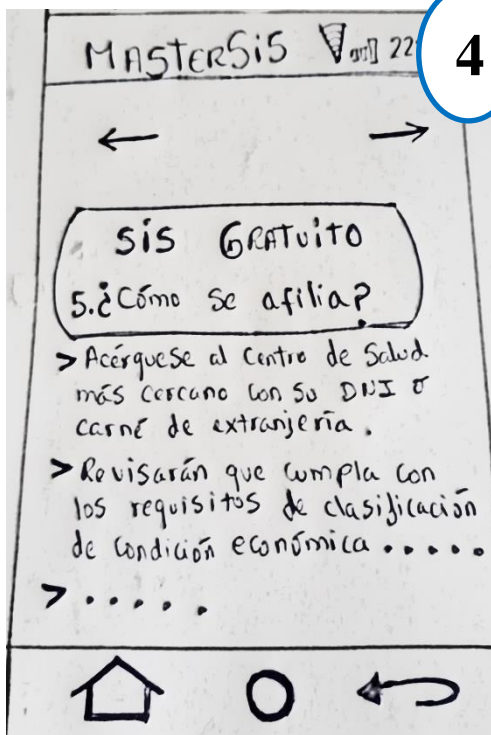 MASTERSiS 22
4
SiS GRATUiTO
5.¿Cómo se afilia?
> Acérquese al Centro de Salud
más cercano con su DNI o
carné de extranjería.
> Revisarán que cumpla con
los requisitos de clasificación
de condición económica .....
> .....